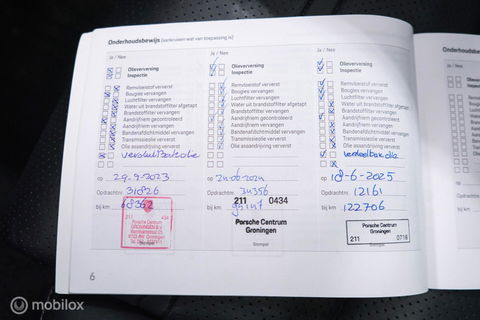 Onderhoudsbewijs (aankruisen wat van toepassing is)
Ja / Nee
Olieverversing
Inspectie
Remvloeistof ververst
Bougies vervangen
Luchtfilter vervangen
Water uit brandstoffilter afgetapt
Brandstoffilter vervangen
Aandrijfriem gecontroleerd
Aandrijfriem vervangen
Bandenafdichtmiddel vervangen
Transmissieolie ververst
Olie asaandrijving ververst
op 29-9-2023
Opdrachtnr. 31826
bij km 68362
211 434
Porsche Centrum
GRONINGEN B.V.
Stempel
Ja / Nee
Olieverversing
Inspectie
Remvloeistof ververst
Bougies vervangen
Luchtfilter vervangen
Water uit brandstoffilter afgetapt
Brandstoffilter vervangen
Aandrijfriem gecontroleerd
Aandrijfriem vervangen
Bandenafdichtmiddel vervangen
Transmissieolie ververst
Olie asaandrijving ververst
op
Opdrachtnr. 34356
bij km
211 0434
Porsche Centrum
Groningen
Stempel
Ja / Nee
Olieverversing
Inspectie
Remvloeistof ververst
Bougies vervangen
Luchtfilter vervangen
Water uit brandstoffilter afgetapt
Brandstoffilter vervangen
Aandrijfriem gecontroleerd
Aandrijfriem vervangen
Bandenafdichtmiddel vervangen
Transmissieolie ververst
Olie asaandrijving ververst
verdeelbak olie
op 18-6-2025
Opdrachtnr. 12161
bij km 122706
Porsche Centrum
Groningen
211 0716
Stempel
6
Onderhoudsb
Ja / Nee
op
Opdrachtnr.
bij km
mobilox